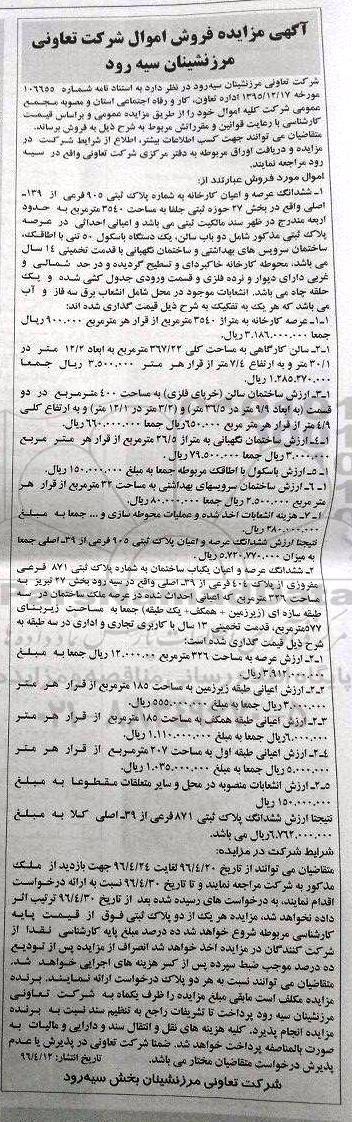 آگهی مزایده فروش اموال شرکت تعاونی
مرزنشینان سیه رود
شرکت تعاونی مرزنشینان سیه‌رود در نظر دارد به استناد نامه شماره ۱۰۶۶۵۵
مورخه ۱۳۹۵/۱۲/۱۷ اداره تعاون، کار و رفاه اجتماعی استان و مصوبه مجمع
عمومی شرکت کلیه اموال خود را از طریق مزایده عمومی و براساس قیمت
کارشناسی با رعایت قوانین و مقرراتش مربوط به شرح ذیل به فروش برساند.
متقاضیان می توانند جهت کسب اطلاعات بیشتر، اطلاع از شرایط شرکت در
مزایده و دریافت اوراق مربوطه به دفتر مرکزی شرکت تعاونی واقع در سیه
رود مراجعه نمایند.
اموال مورد فروش عبارتند از:
۱ـ ششدانگ عرصه و اعیان کارخانه به شماره پلاک ثبتی ۹۰۵ فرعی از ۳۹ـ
اصلی واقع در بخش ۲۷ حوزه ثبتی جلفا به مساحت ۳۵۴۰ مترمربع به حدود
اربعه مندرج در ظهر سند مالکیت ثبتی می باشد و اعیانی احداثی در عرصه
پلاک ثبتی مذکور شامل دو باب سالن، یک دستگاه باسکول ۵۰ تنی با اطاقک،
ساختمان سرویس های بهداشتی و ساختمان نگهبانی با قدمت تخمینی ۱۴ سال
می باشد، محوطه کارخانه خاکبرداری و تسطیح گردیده و در حد شمالی و
غربی دارای دیوار و نرده فلزی و قسمت ورودی جدول کشی شده و یک
حلقه چاه می باشد. انشعابات موجود در محل شامل انشعاب برق سه فاز و آب
می باشد که هر یک به تفکیک به شرح ذیل قیمت گذاری شده اند:
۱ـ۱ـ عرصه کارخانه به متراژ ۳۵۴۰ مترمربع از قرار هر مترمربع ۹۰۰.۰۰۰ ریال
جمعا ۳.۱۸۶.۰۰۰.۰۰۰ ریال.
۱ـ۲ـ سالن کارگاهی به مساحت کلی ۳۶۷/۲۲ مترمربع به ابعاد ۱۲/۲ متر در
۳۰/۱ متر و به ارتفاع ۷/۴ متر از قرار هر متر ۳.۵۰۰.۰۰۰ ریال جمعا
۱.۲۸۵.۲۷۰.۰۰۰ ریال.
۱ـ۳ـ ارزش ساختمان سالن (خرپای فلزی) به مساحت ۴۰۰ مترمربع در دو
قسمت (به ابعاد ۹/۹ متر در ۳۶/۵ متر) و (۳/۳ متر در ۱۲/۱ متر) و به ارتفاع کلی
۴/۹ متر از قرار هر متر مربع ۶۵۰.۰۰۰ ریال جمعا ۶۶۰.۰۰۰.۰۰۰ ریال.
۱ـ۴ـ ارزش ساختمان نگهبانی به متراژ ۲۶/۵ مترمربع از قرار هر متر مربع
۳.۰۰۰.۰۰۰ ریال جمعا ۷۹.۵۰۰.۰۰۰ ریال.
۱ـ۵ـ ارزش باسکول با اطاقک مربوطه جمعا به مبلغ ۱۵۰.۰۰۰.۰۰۰ ریال.
۱ـ۶ـ ارزش ساختمان سرویسهای بهداشتی به مساحت ۳۲ مترمربع از قرار هر
متر مربع ۲.۵۰۰.۰۰۰ ریال جمعا ۸۰.۰۰۰.۰۰۰ ریال.
۱ـ۷ـ هزینه انشعابات اخذ شده و عملیات محوطه سازی و ... جمعا به مبلغ
۲۸۰.۰۰۰.۰۰۰ ریال.
نتیجتا ارزش ششدانگ عرصه و اعیان پلاک ثبتی ۹۰۵ فرعی از ۳۹ـ اصلی جمعا
به میزان ۵.۷۲۰.۷۷۰.۰۰۰ ریال.
۲ـ ششدانگ عرصه و اعیان یکباب ساختمان به شماره پلاک ثبتی ۸۷۱ فرعی
مفروزی از پلاک ۴۰۴ فرعی از ۳۹ـ اصلی واقع در سیه رود بخش ۲۷ تبریز به
مساحت ۳۲۶ مترمربع که اعیانی احداث شده در عرصه ملک ساختمان در سه
طبقه سازه ای (زیرزمین + همکف+ یک طبقه) جمعا به مساحت زیربنای
۵۷۷مترمربع، قدمت تخمینی ۱۳ سال با کاربری تجاری و اداری در سه طبقه به
شرح ذیل قیمت گذاری شده است:
۲ـ۱ـ ارزش عرصه به مساحت ۳۲۶ مترمربع ۱۲.۰۰۰.۰۰۰ ریال جمعا به مبلغ
۳.۹۱۲.۰۰۰.۰۰۰ ریال.
۲ـ۲ـ ارزش اعیانی طبقه زیرزمین به مساحت ۱۸۵ مترمربع از قرار هر متر
۳.۰۰۰.۰۰۰ ریال جمعا به مبلغ ۵۵۵.۰۰۰.۰۰۰ ریال.
۲ـ۳ـ ارزش اعیانی طبقه همکف به مساحت ۱۸۵ مترمربع از قرار هر متر
۶.۰۰۰.۰۰۰ ریال جمعا به مبلغ ۱.۱۱۰.۰۰۰.۰۰۰ ریال.
۲ـ۴ـ ارزش اعیانی طبقه اول به مساحت ۲۰۷ مترمربع از قرار هر متر
۵.۰۰۰.۰۰۰ ریال جمعا به مبلغ ۱.۰۳۵.۰۰۰.۰۰۰ ریال.
۲ـ۵ـ ارزش انشعابات منصوبه در محل و سایر متعلقات مقطوعا به مبلغ
۱۵۰.۰۰۰.۰۰۰ ریال
نتیجتا ارزش ششدانگ پلاک ثبتی ۸۷۱ فرعی از ۳۹ـ اصلی کلا به مبلغ
۶.۷۶۲.۰۰۰.۰۰۰ ریال می باشد.
شرایط شرکت در مزایده:
متقاضیان می توانند از تاریخ ۹۶/۴/۲۰ لغایت ۹۶/۴/۲۴ جهت بازدید از ملک
مذکور به شرکت مراجعه نمایند و تا تاریخ ۹۶/۴/۳۰ نسبت به ارائه درخواست
اقدام نمایند، به درخواست های رسیده شده بعد از تاریخ ۹۶/۴/۳۰ ترتیب اثر
داده نخواهد شد، مزایده هر یک از دو پلاک ثبتی فوق از قیمت پایه
کارشناسی مربوطه شروع خواهد شد ده درصد مبلغ پایه کارشناسی نقدا از
شرکت کنندگان در مزایده اخذ خواهد شد انصراف از مزایده پس از تودیع
ده درصد موجب ضبط سپرده پس از کسر هزینه های اجرایی خواهد شد.
متقاضیان می توانند نسبت به هر دو پلاک درخواست ارائه نمایند. برنده
مزایده مکلف است مابقی مبلغ مزایده را ظرف یکماه به شرکت تعاونی
مرزنشینان سیه رود پرداخت تا تشریفات راجع به تنظیم سند نسبت به برنده
مزایده انجام پذیرد. کلیه هزینه های نقل و انتقال سند و دارایی و مالیات به
صورت بالمناصفه پرداخت خواهد شد. ضمنا شرکت تعاونی در پذیرش یا عدم
پذیرش درخواست متقاضیان مختار می باشد.
تاریخ انتشار: ۹۶/۴/۱۲
شرکت تعاونی مرزنشینان بخش سیه‌رود